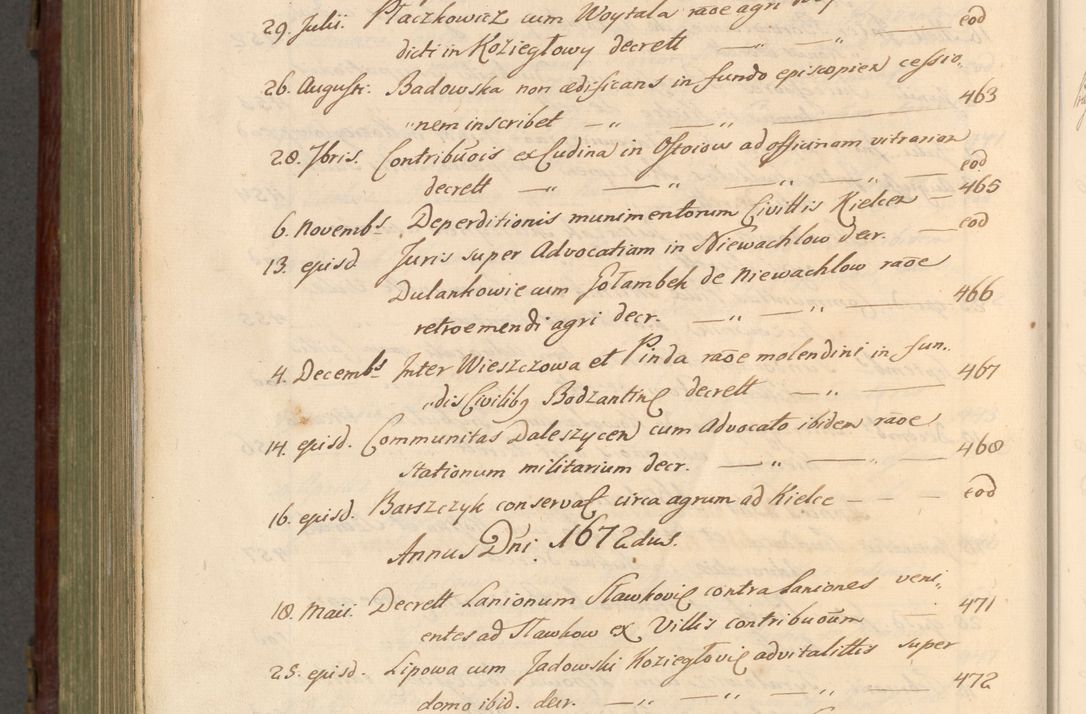 29. Julii. Płaczkowicz cum Woytala raõe agri
dicti in Koziegłowy decrett — „ — „ — eod
26. Augusti. Badowska non ædificans in fundo episcopien cessio„
„nem inscribet — „ — „ — 463
28. 7bris. Contribuõis ex Cudina in Ostoiow ad officinam vitrarian
decrett — „ — „ — „ — „ — eod
6. Novembs. Deperditionis munimentorum Civittis Kielcen — 465
13. ejusd Juris super Advocatiam in Niewachlow decr. — eod
Dulankowie cum Gołambek de Niewachlow raõe
retroemendi agri decr. — „ — „ — 466
4. Decembs Inter Wieszczowa et Pinda raõe molendini in fun„
„dis Civilibg Bodzantinę decrett — „ — 467
14. ejusd. Communitas Daleszycen cum Advocato ibidem raõe
stationum militarium decr. — „ — „ — 468
16. ejusd. Barszczyk conservaę circa agrum ad Kielce — — — eod
Annus Dńi 1672dus.
18. Maii. Decrett Lanionum Sławkovię contra laniones veni„
entes ad Sławkow ex Villis contribuoũm — 471
25. ejusd. Lipowa cum Jadowski Koziegłovię advitalittis super
domo ibid. decr. — „ — „ — „ — 472